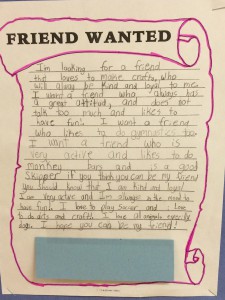 FRIEND WANTED
I'm looking for a friend
the loves to make crafts, who
will always be kind and loyal to me.
I want a friend who always has
a great attitud, and does not
talk too much and likes to
have fun. I want a friend
who likes to do gymnastics too.
I want a friend who is
very active and likes to do
monkey bars and is a good
skipper. If you think you can be my friend
you should know that I am kind and loyal!
I am very active and I'm always in the mood to
have fun. I love to play soccer and I love
to do arts and crafts. I love all animals
dogs. I hope you can be my friend!